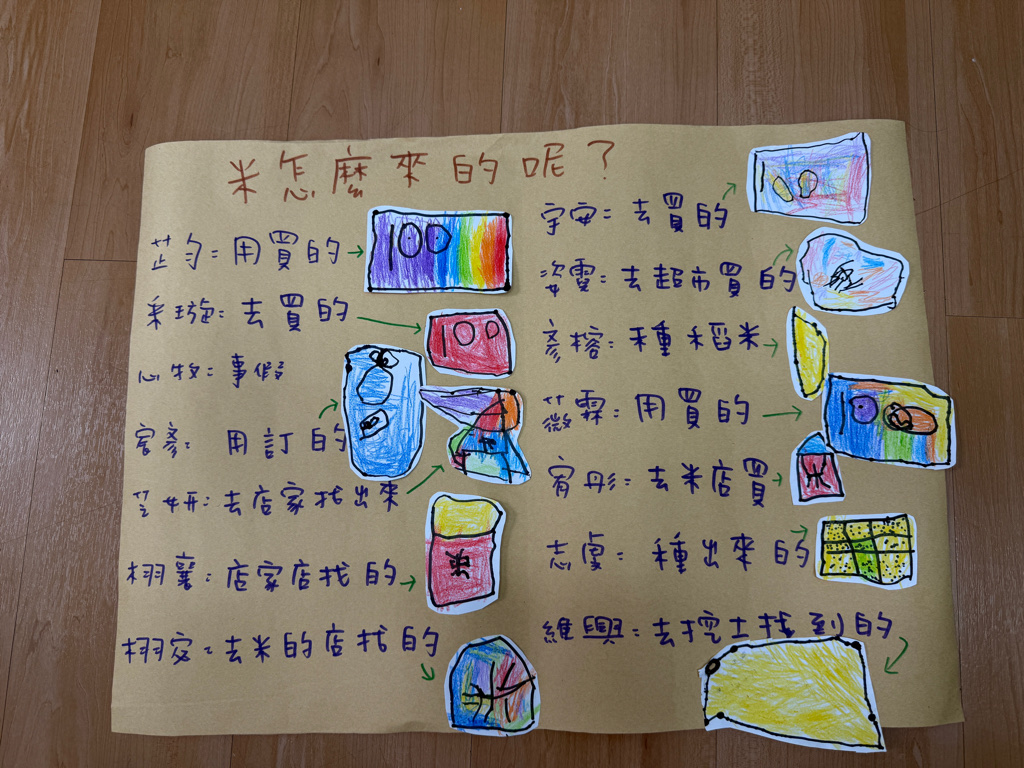 米怎麼來的呢？
芷昀：用買的
100
采璇：去買的
100
心牧：事假
宥彥：用訂的
芝妍：去店家找出來
栩襄：店家店找的
米
栩安：去米的店找的
米
宇安：去買的
100
姿霓：去超市買的
彥榕：種稻米
薇霖：用買的
100
宥彤：去米店買
米
志虔：種出來的
維興：去挖土找到的